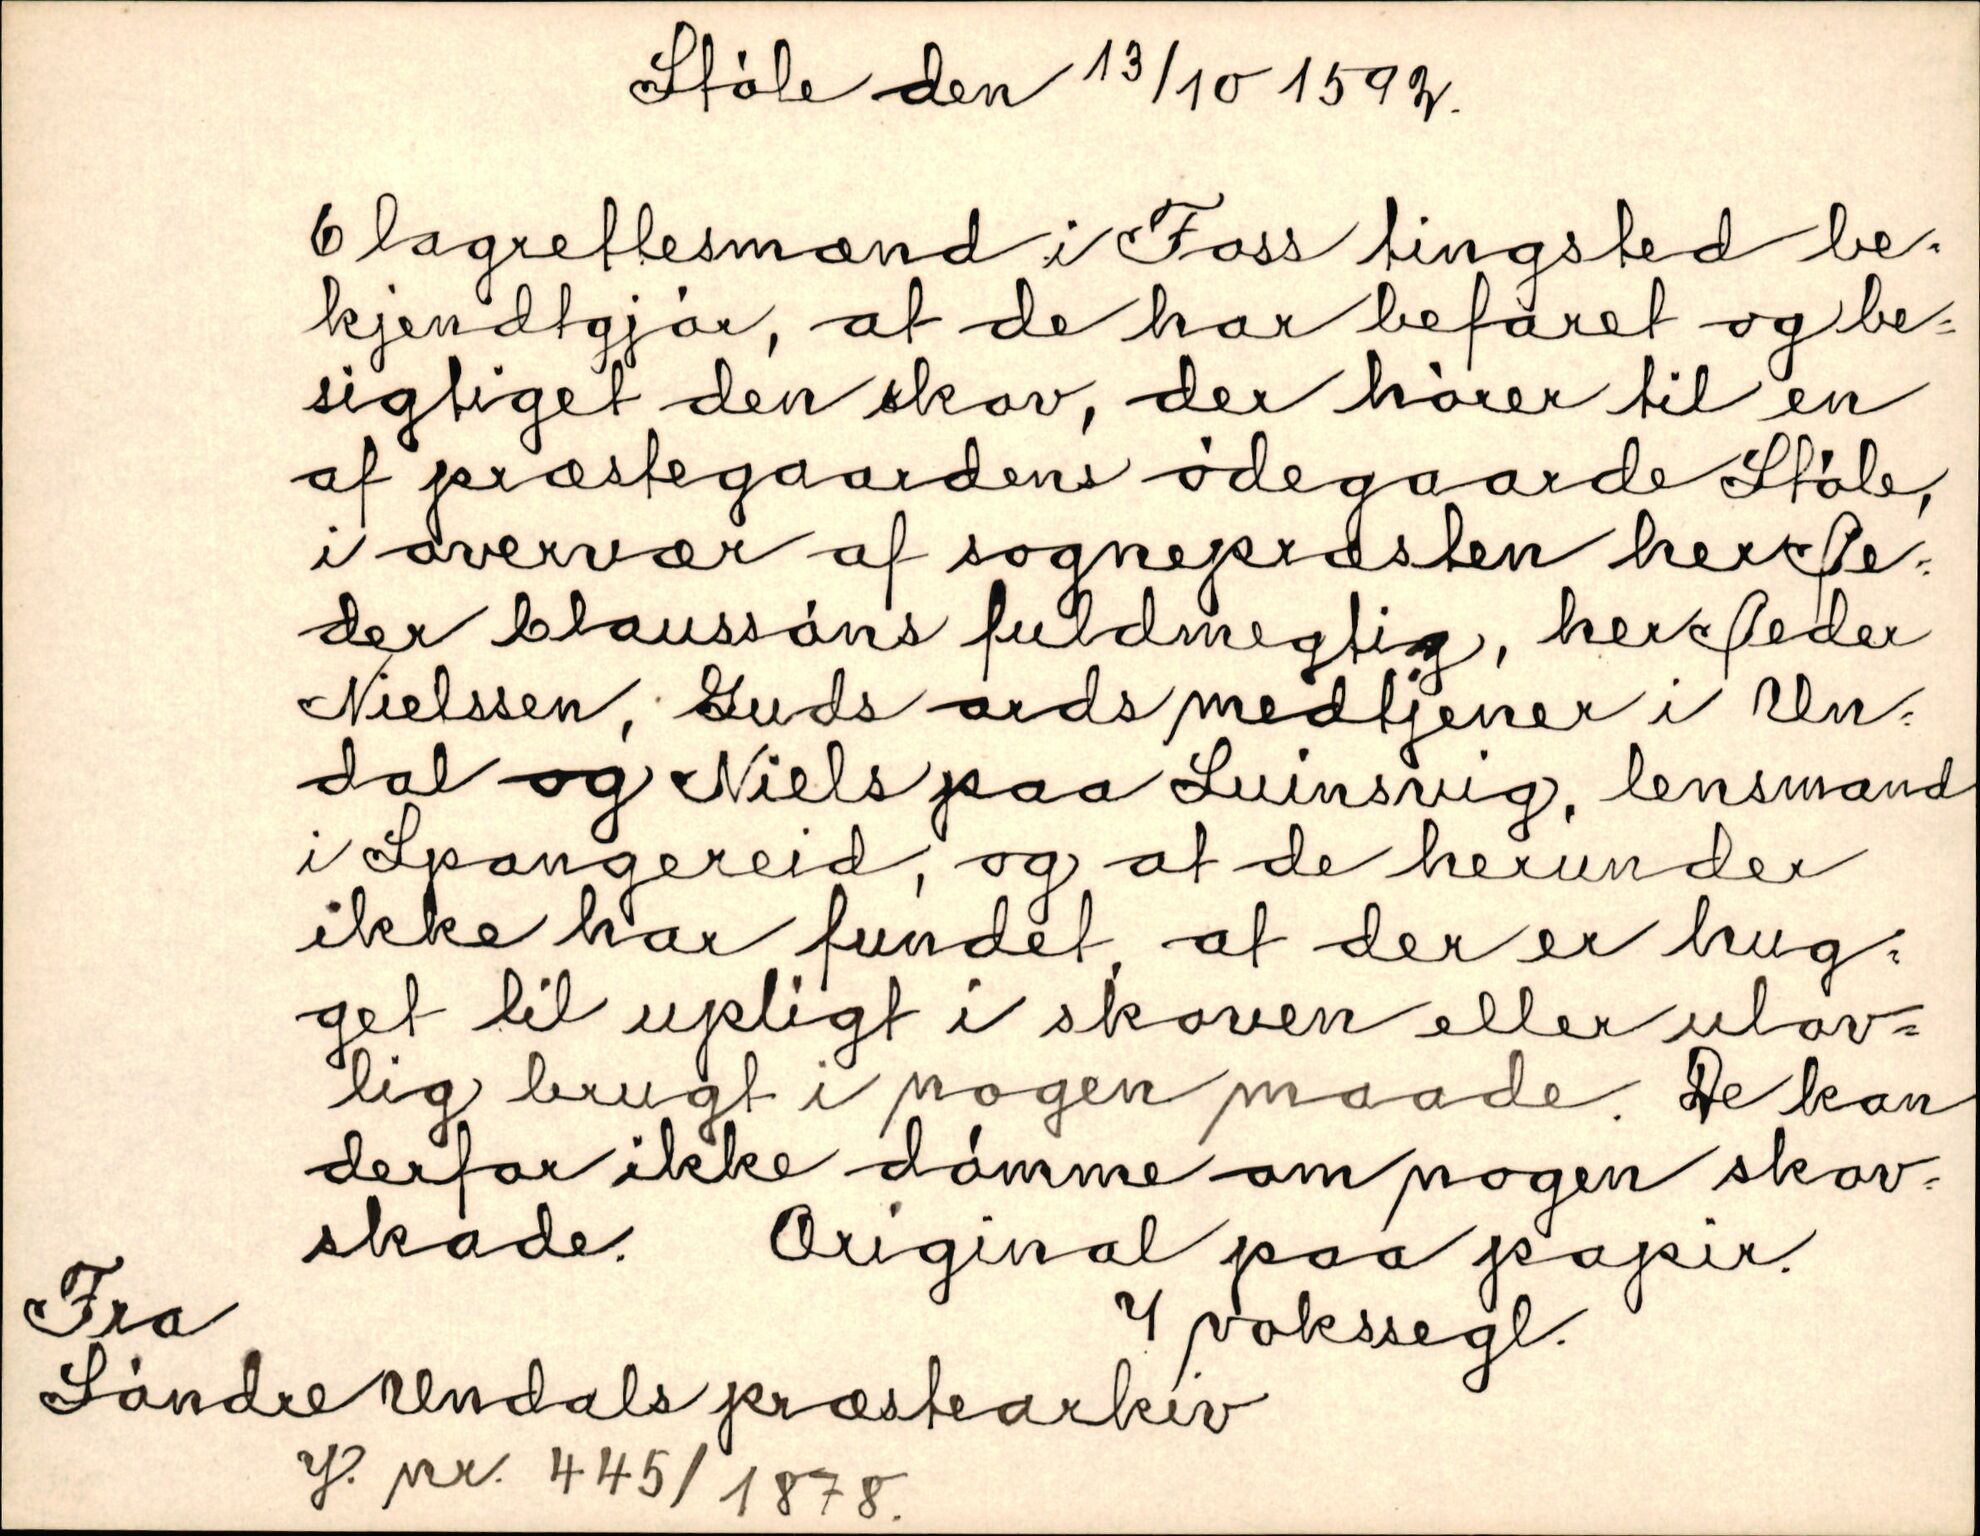 Stóle den 13/10 1592.
6 lagrettesmænd i Foss tingsted be-
kjendtgjór, at de har befaret og be-
sigtiget den skov, der hórer til en
af præstegaardens ódegaarde Stóle,
i overvær af sognepræsten her Pe-
der Claussóns fuldmegtig, her Peder
Nielssen, Guds ords medtjener i Un-
dal og Niels paa Luinsvig, lensmand
i Spangereid, og at de herunder
ikke har fundet, at der er hug-
get til upligt i skoven eller ulov-
lig brugt i nogen maade. De kan
derfor ikke dómme om nogen skov-
skade. Original paa papir.
4 vokssegl.
Fra
Sóndre Undals præstearkiv
J. nr. 445/1878.